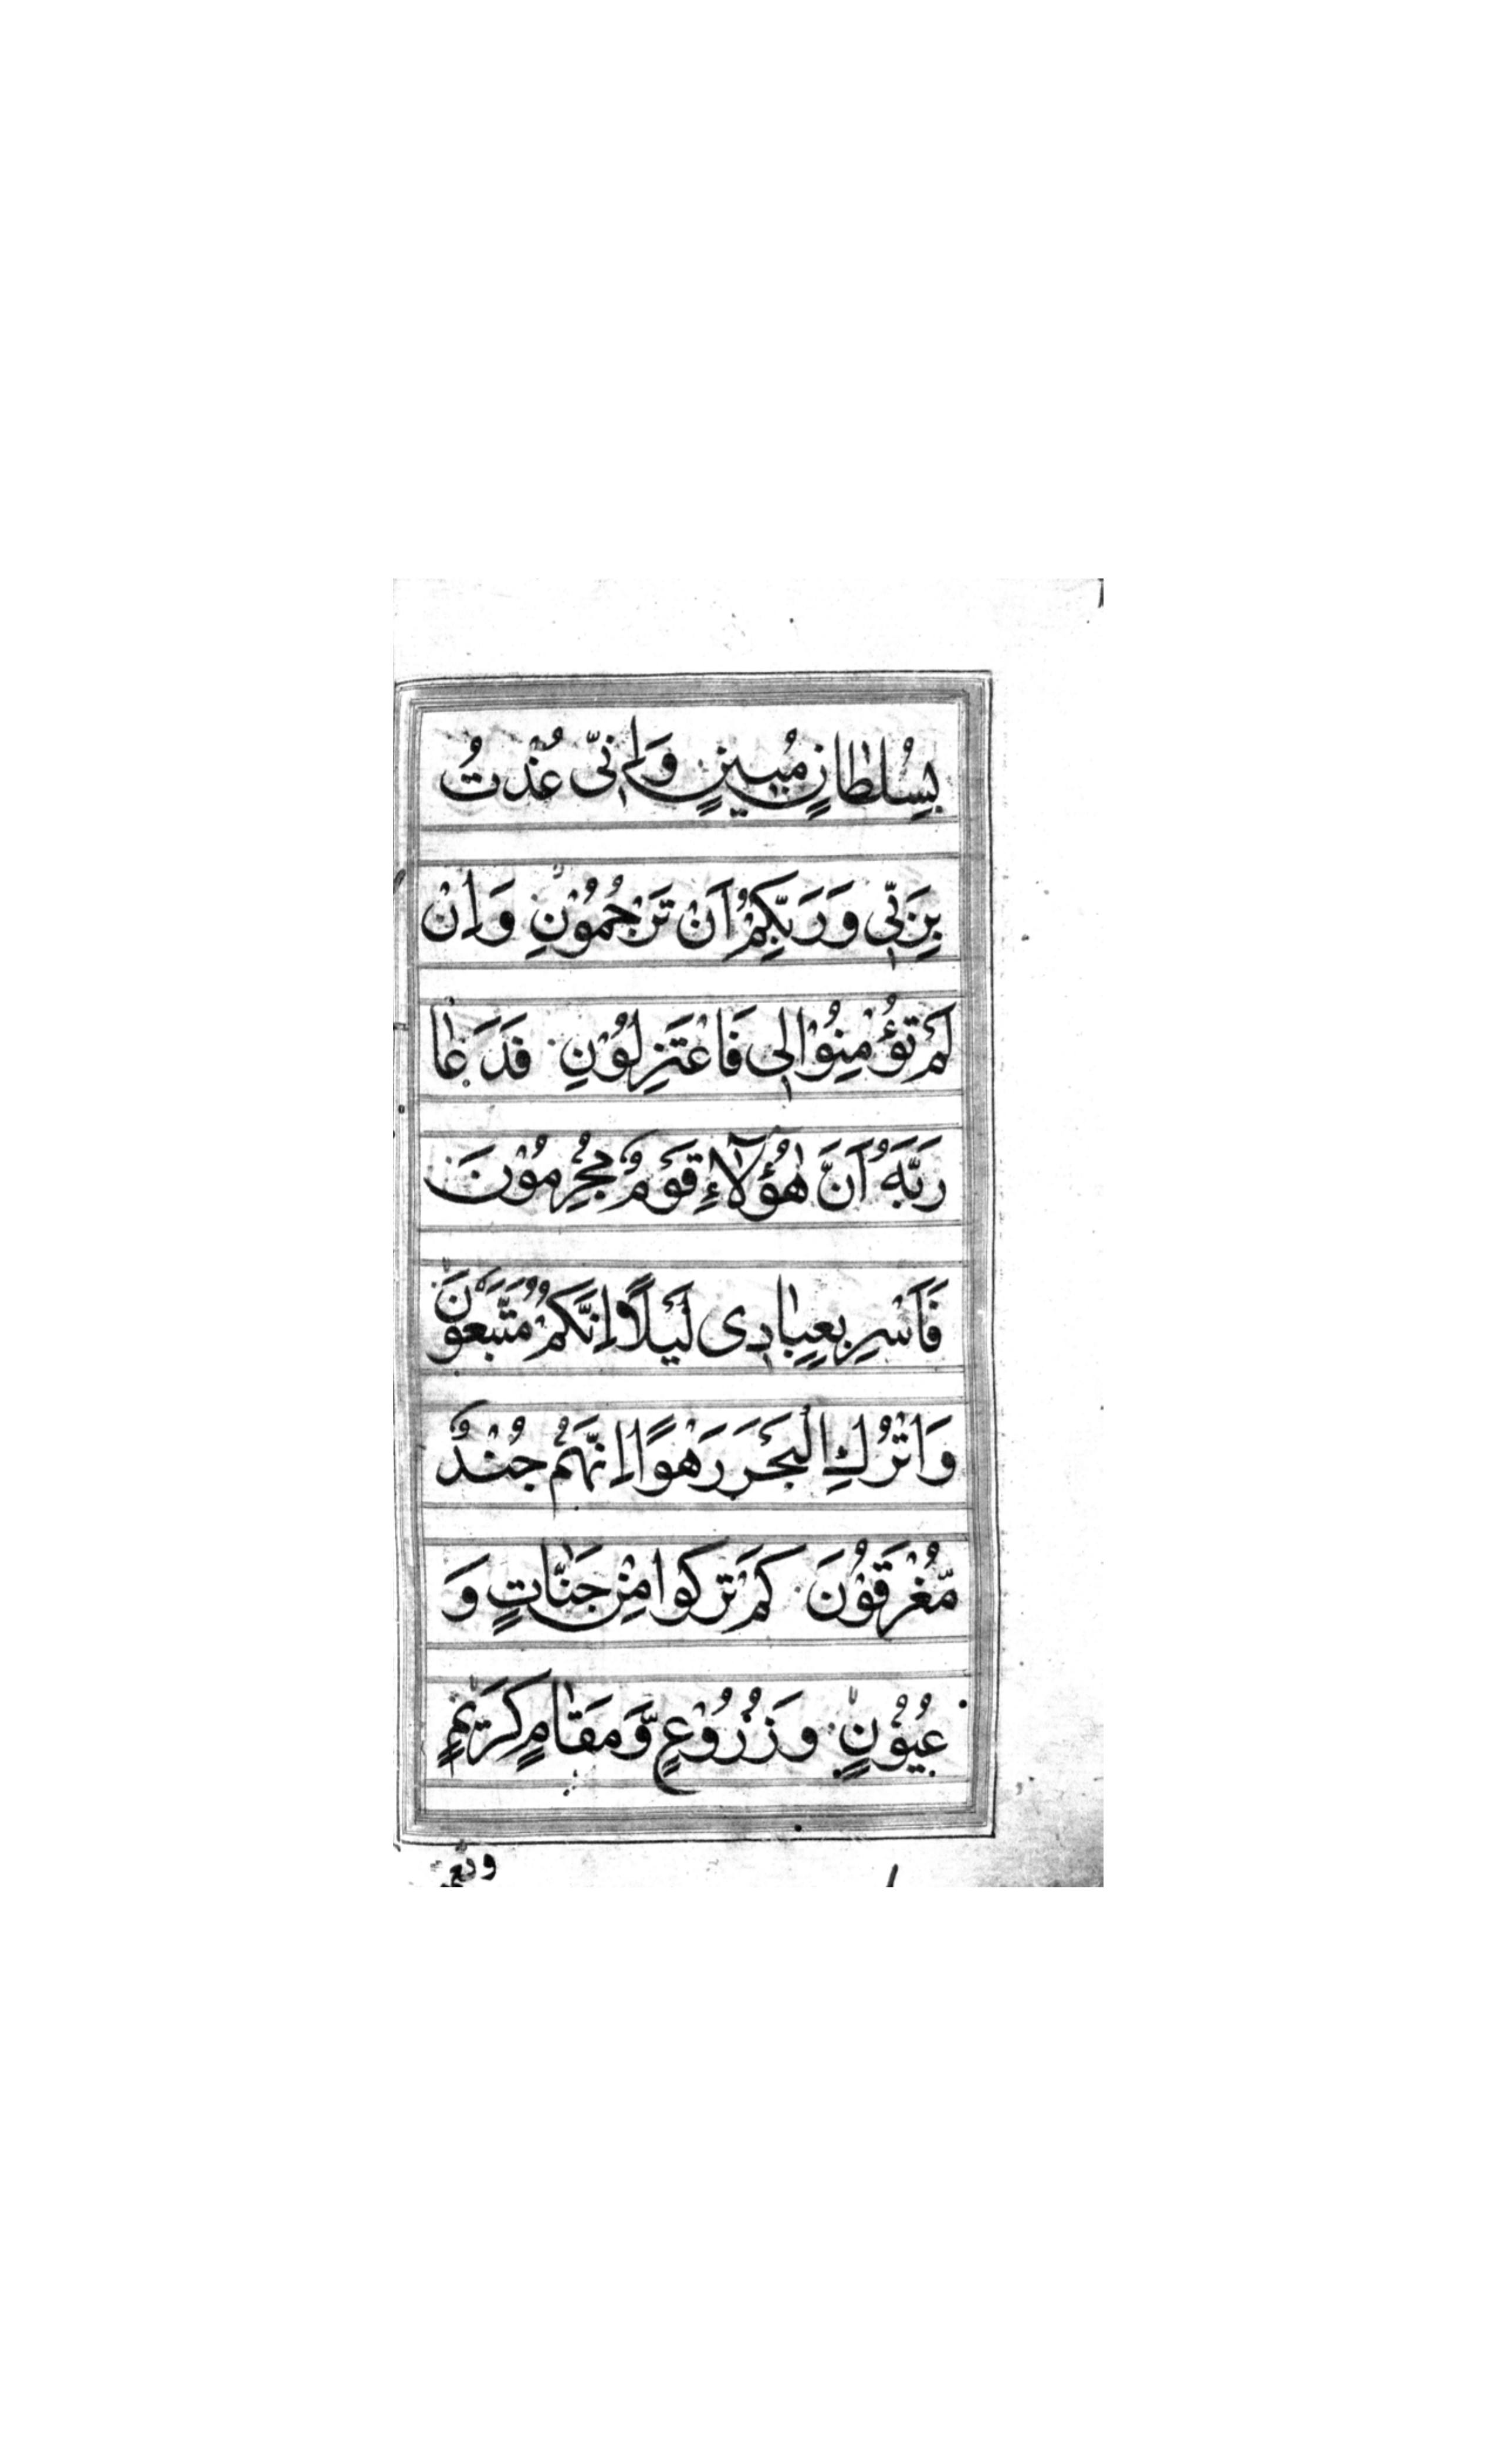 بِسُلطَانٍ مُبِينٍ وَاِنّي عُذْتُ
بِرَبِّي وَرَبِّكُمْ اَنْ تَرْجُمُوْنِ وَاِنْ
لَمْ تُؤْمِنُوْا لِي فَاعْتَزِلُوْنِ فَدَعَا
رَبَّهُ اَنَّ هٰؤُلَآءِ قَوْمٌ مُجْرِمُوْنَ
فَاَسْرِ بِعِبَادِى لَيْلًا اِنَّكُمْ مُتَّبَعُوْنَ
وَاتْرُكِ الْبَحْرَ رَهْوًا اِنَّهُمْ جُنْدٌ
مُّغْرَقُوْنَ كَمْ تَرَكُوا مِنْ جَنَّاتٍ وَ
عُيُوْنٍ وَزُرُوْعٍ وَّمَقَامٍ كَرِيْمٍ